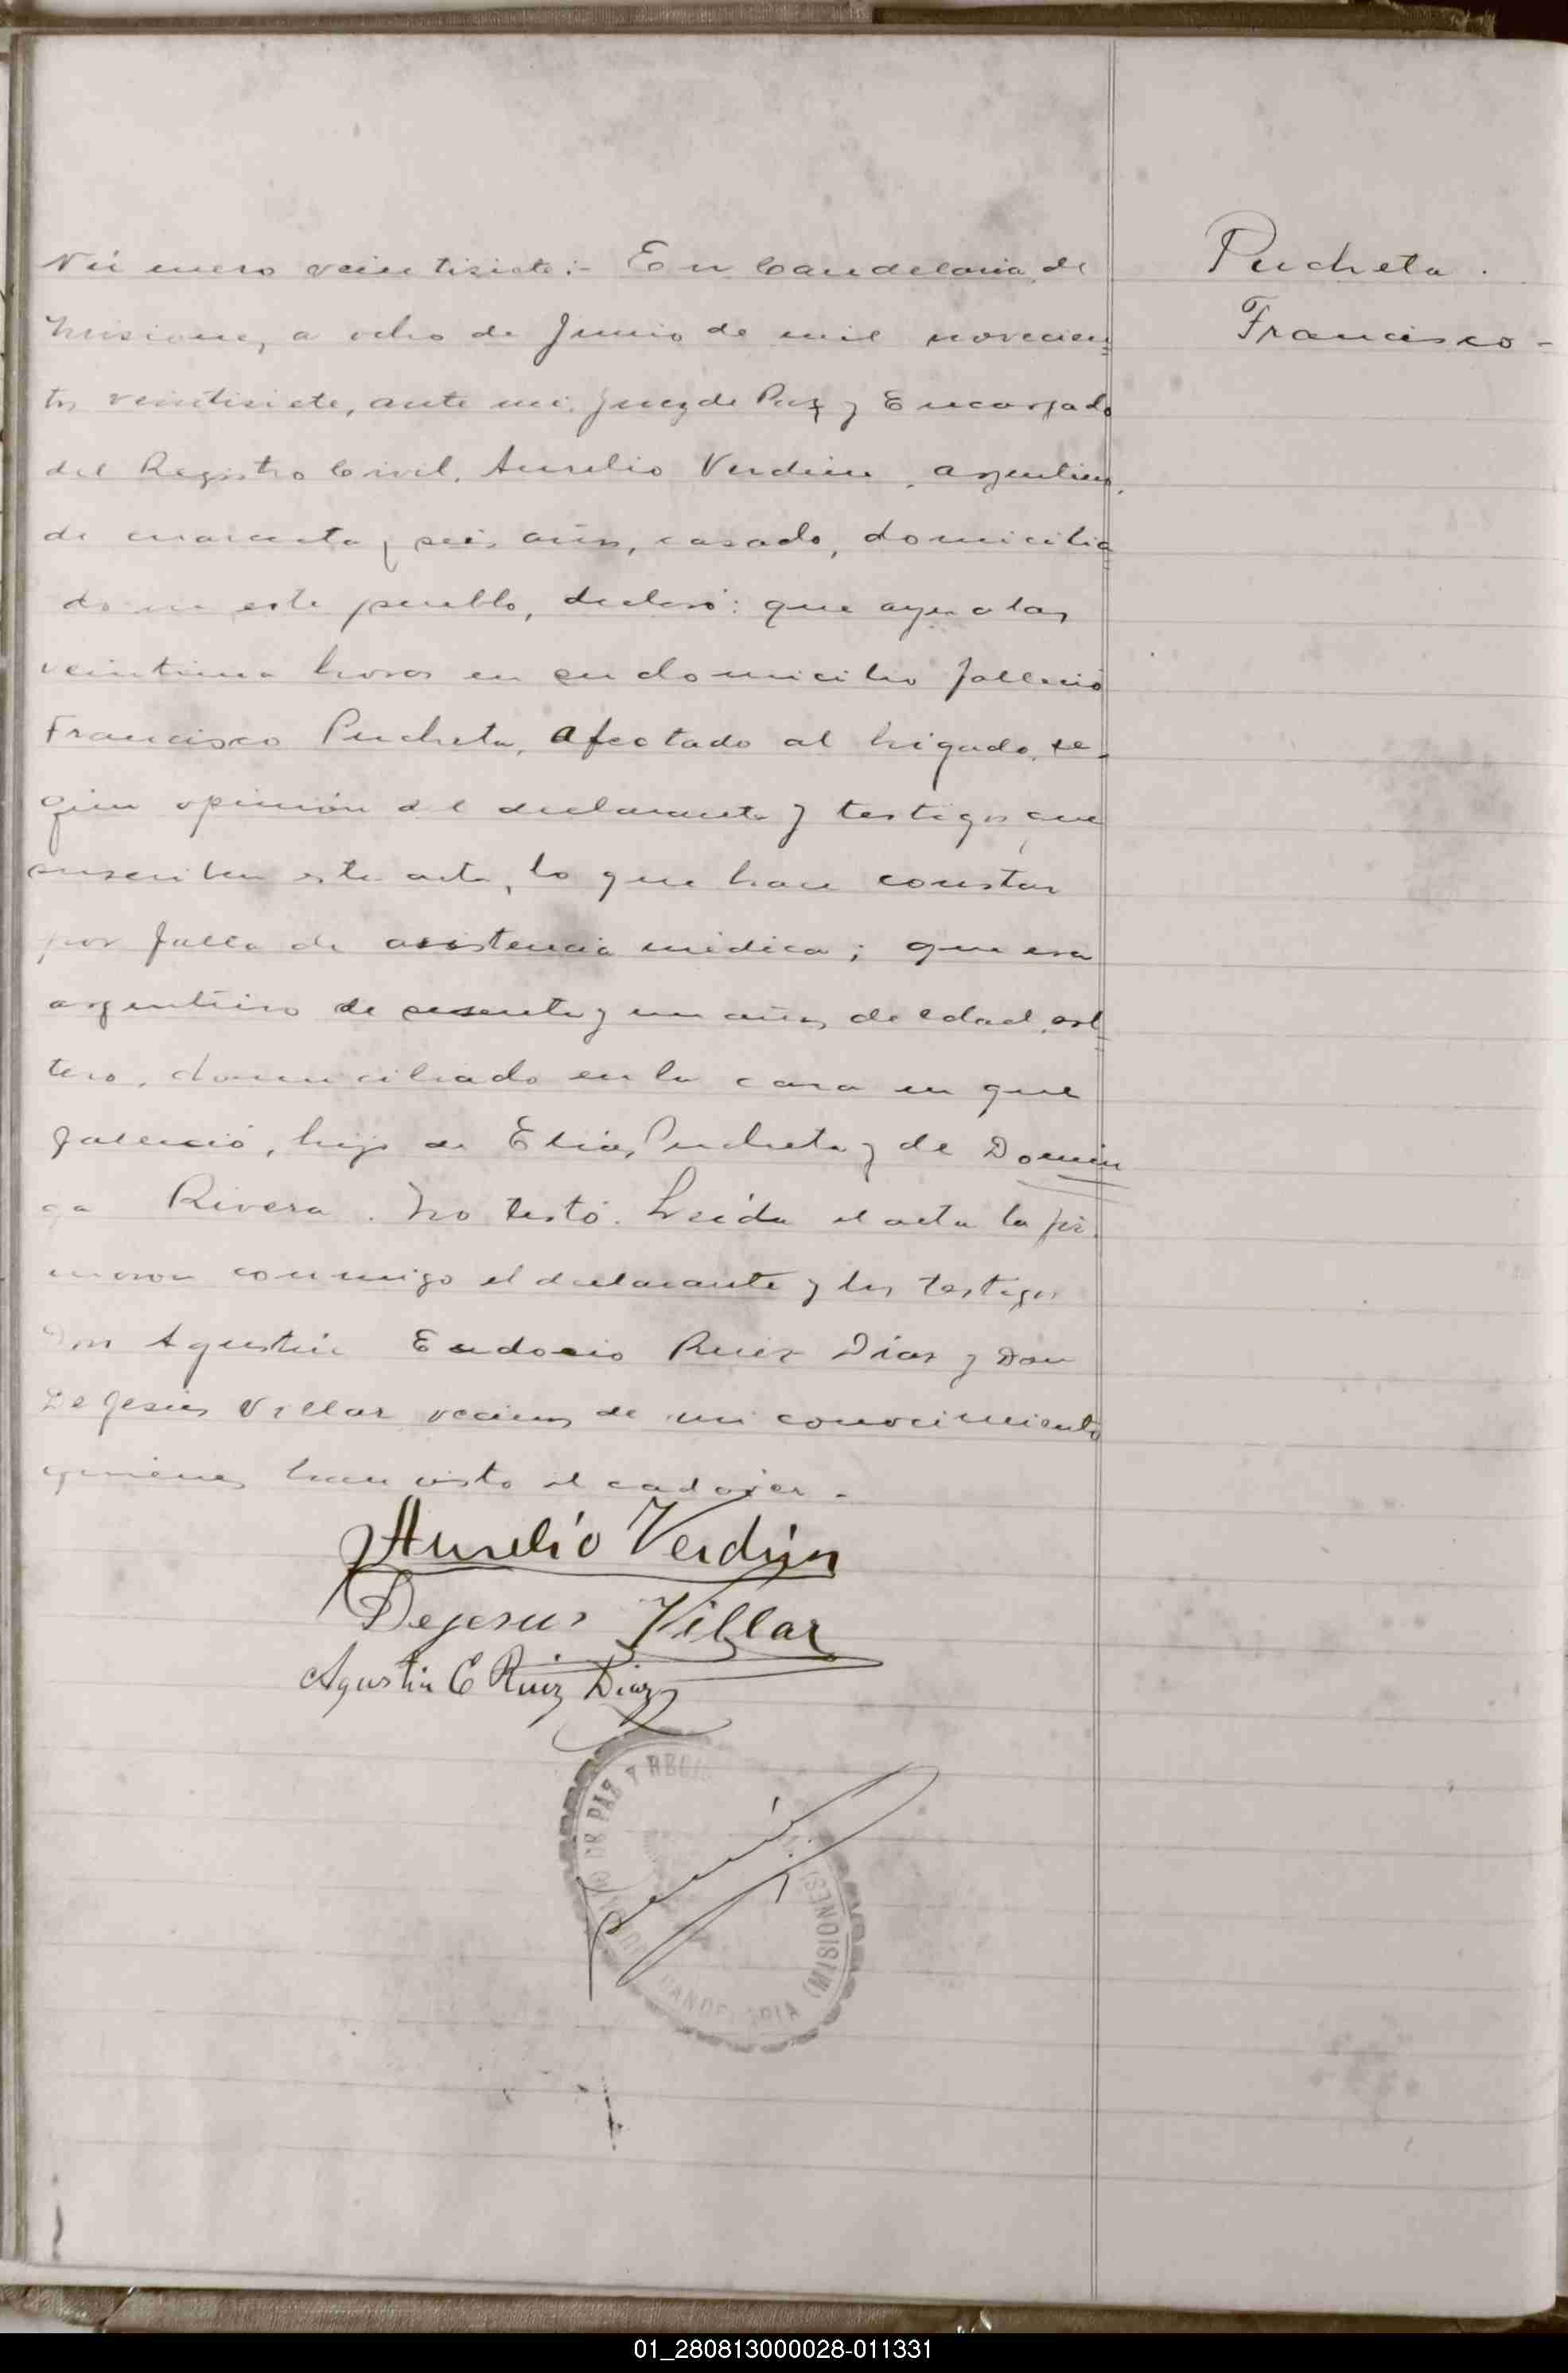 Número veintisiete:- En Candelaria, de
Misiones, a ocho de Junio de mil novecien=
tos veintisiete, ante mi, Juez de Paz y Encargado
del Registro Civil, Aurelio Verdún, argentino,
de cuarenta y seis años, casado, domicilia=
do en este pueblo, declaró: que ayer a las
veintiuna horas en su domicilio falleció
Francisco Pucheta, afectado al higado, se-
gún opinión del declarante y testigos que
suscriben este acta, lo que hace constar
por falta de asistencia médica; que era
argentino de sesenta y un años de edad, sol=
tero, domiciliado en la casa en que
falleció, hijo de Elias Pucheta y de Domin=
ga Rivera. No testó. Leída el acta la fir-
maron conmigo el declarante y los testigos
Don Agustín Eudocio Ruiz Díaz y Don
De Jesús Villar vecinos de mi conocimiento
quienes han visto el cadáver.-
Pucheta.
Francisco-
Aurelio Verdún
Dejesus Villar
Agustin E Ruiz Diaz
DE PAZ Y REGIS
CANDELARIA (MISIONES)
01_280813000028-011331